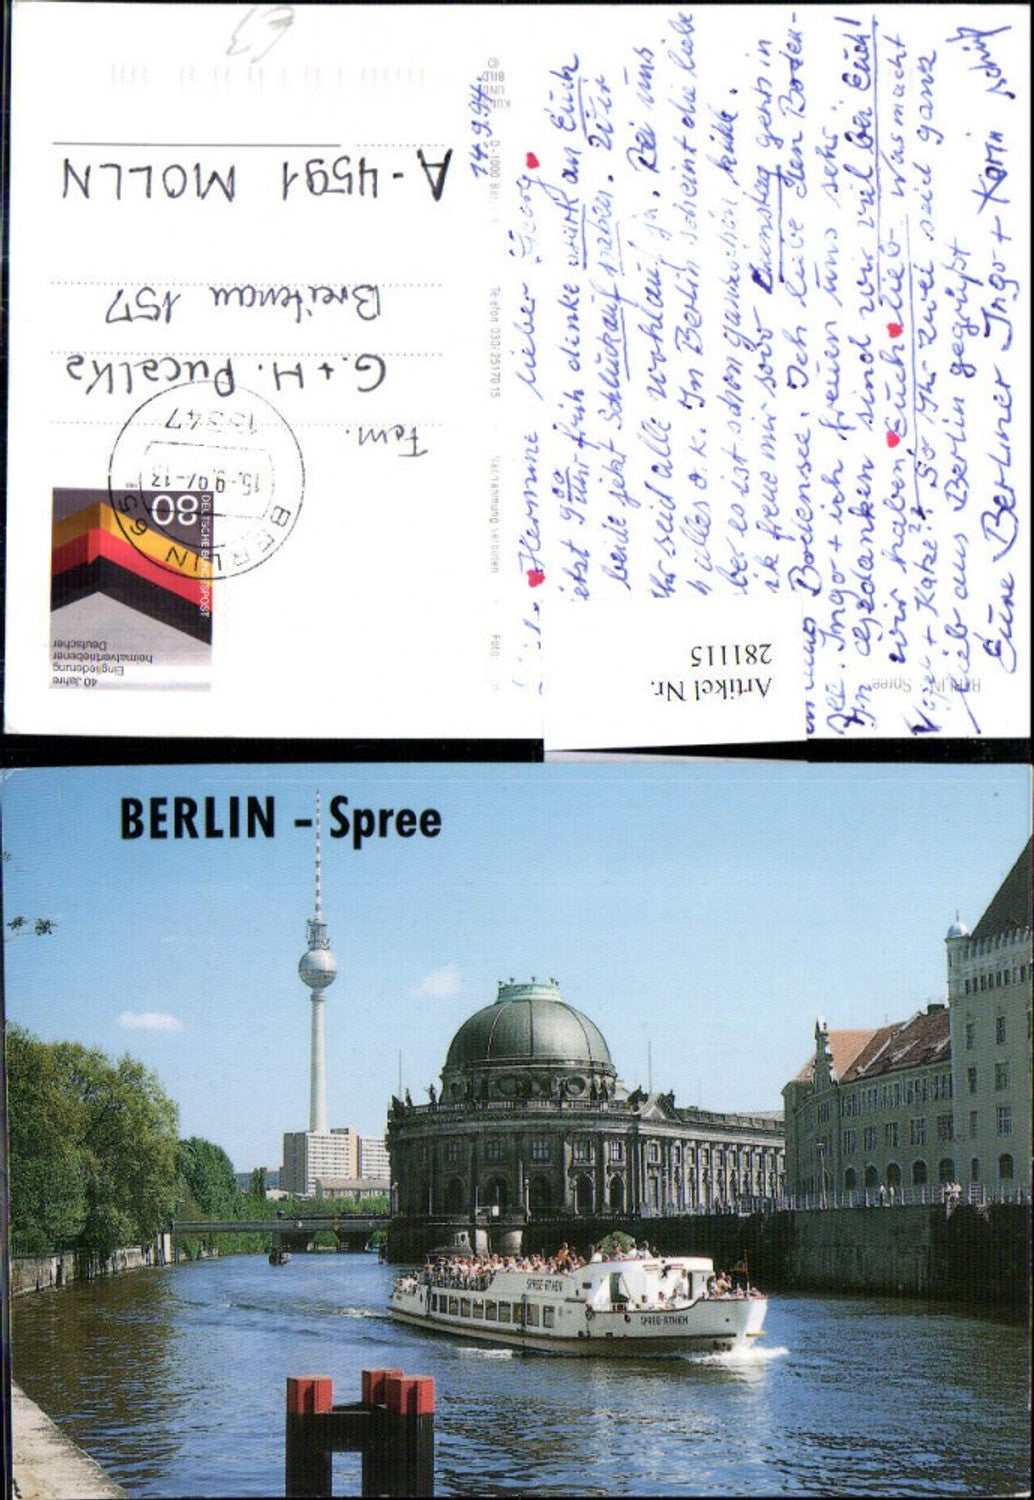 14.9.94.
Hermine lieber Georg
jetzt 9ºº Uhr früh denke stark an Euch
beide jetzt
Ihr seid alle wohlauf ja. Bei uns
alles o.k. In Berlin scheint die liebe
ber es ist schon ganz schön kühl.
ik freue mir sooo Dienstag gehts in
Bodensee. Ich liebe den Boden-
see. Ingo + ich freuen uns sehr
In Gedanken sind wir viel bei Euch!
wir haben Euch lieb. Was macht
Vogel + Katze? So Ihr zwei seid ganz
lieb aus Berlin gegrüßt
Eure Berliner Ingo + Karin
Artikel Nr.
281115
BERLIN - Spree
Telefon 030/2517015
Nachahmung verboten
Foto:
KUNST
UND
BILD
D-1000 Berlin
40 Jahre
Eingliederung
heimatvertriebener
Deutscher
DEUTSCHE BUNDESPOST
80
BERLIN 65
15.-9.94-13
13347
Fam.
G. + H. Pucalka
Breitenau 157
A-4591 MOLLN
BERLIN - Spree
SPREE-ATHEN
SPREE-ATHEN